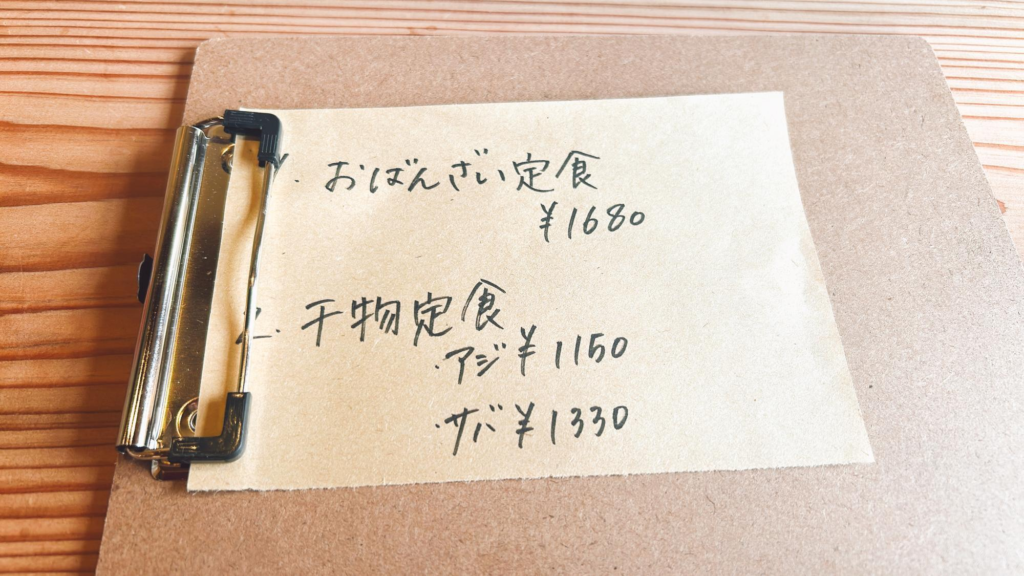 1. おばんざい定食
¥1680
2. 干物定食
・アジ ¥1150
・サバ ¥1330